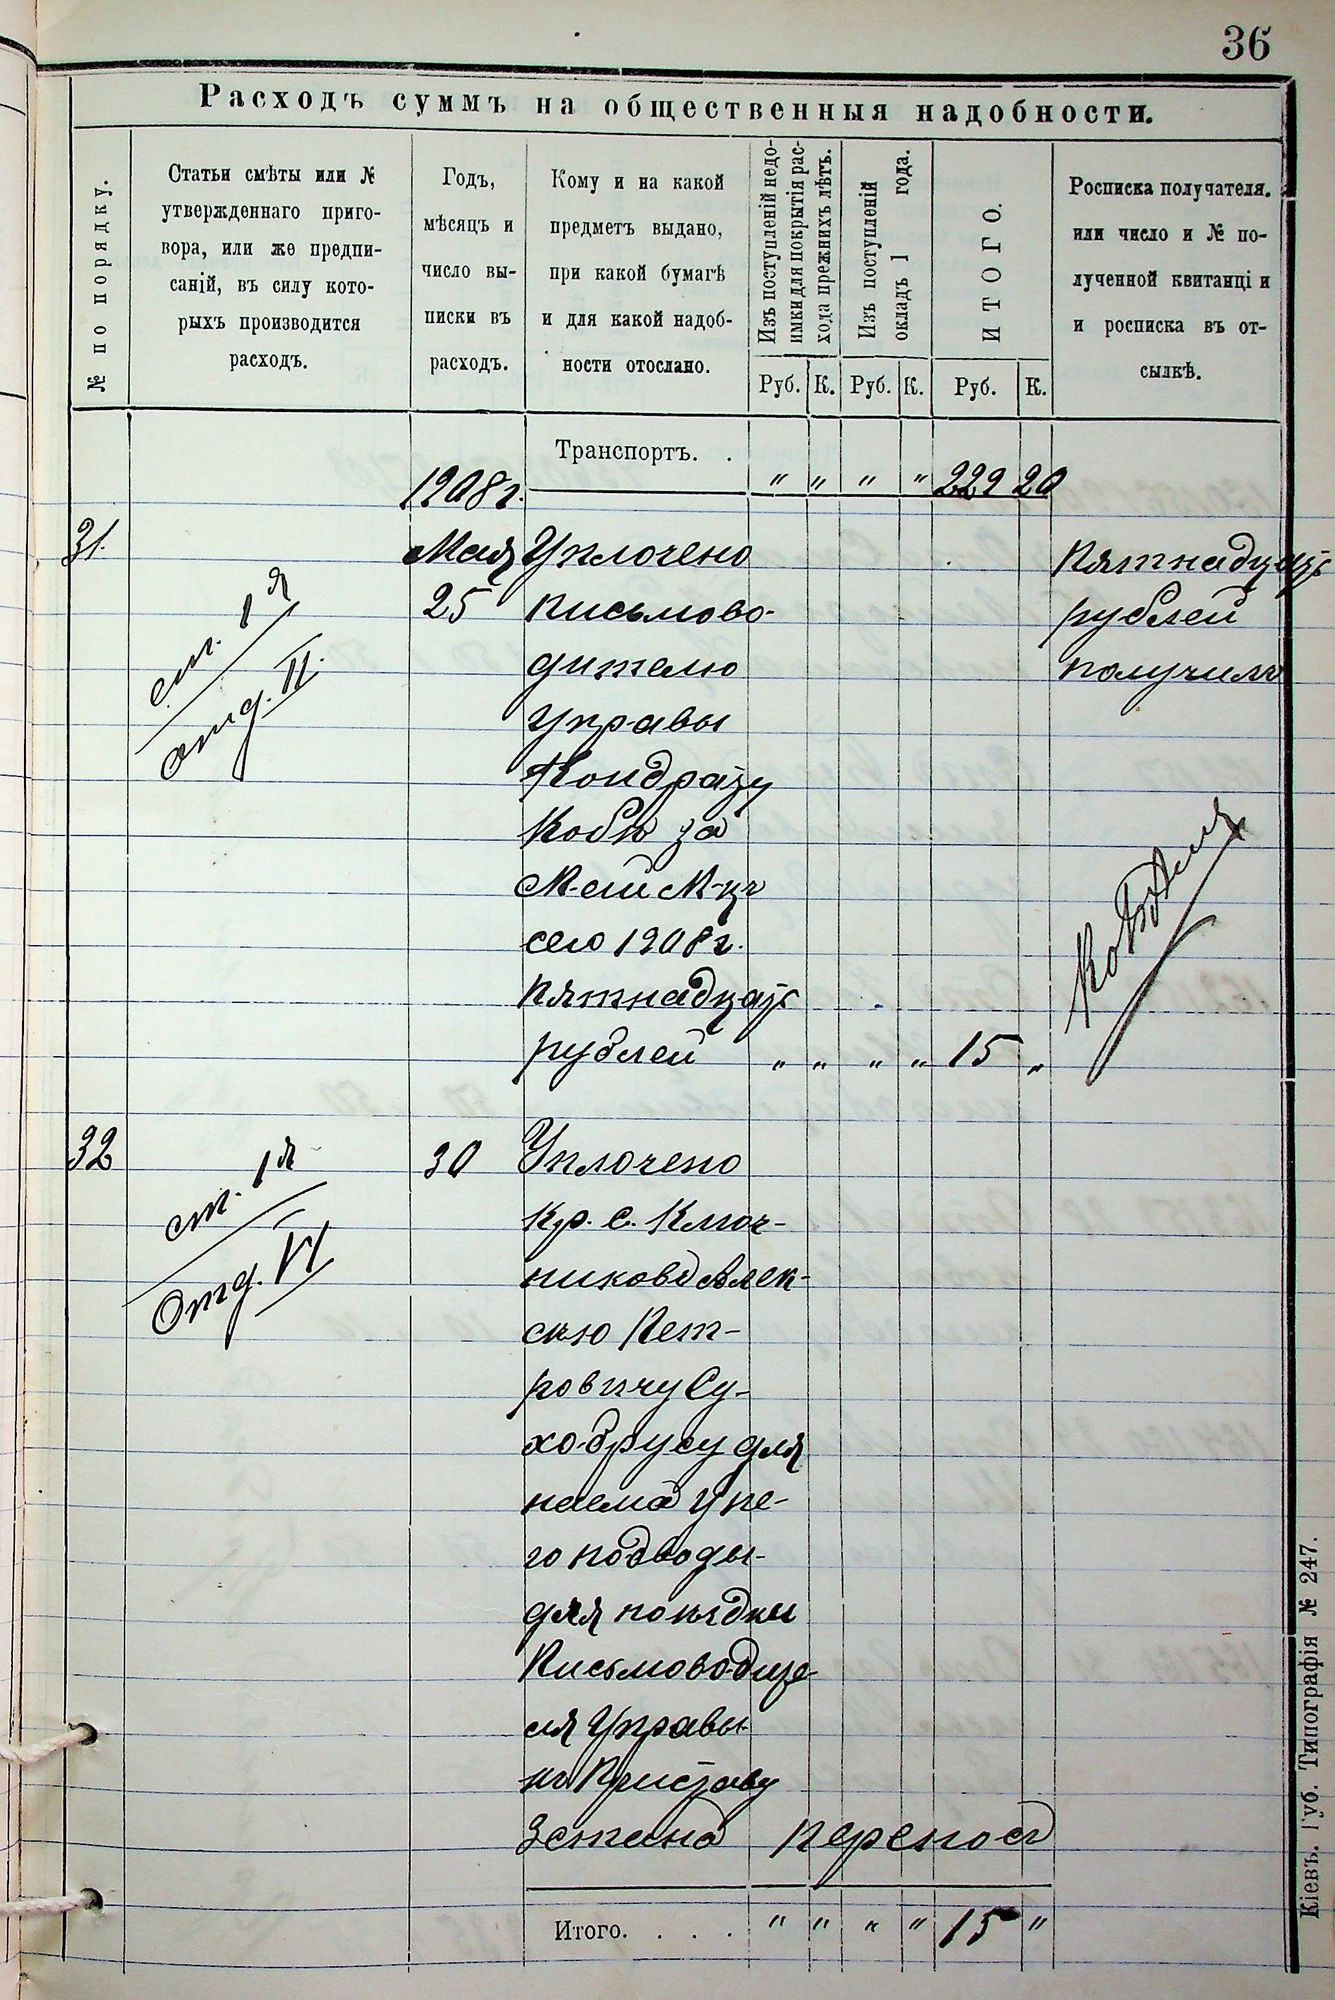 36
Расходъ суммъ на общественныя надобности.
№ по порядку.
Статьи смѣты или №
утвержденнаго приго-
вора, или же предпи-
саній, въ силу кото-
рыхъ производится
расходъ.
Годъ,
мѣсяцъ и
число вы-
писки въ
расходъ.
Кому и на какой
предметъ выдано,
при какой бумагѣ
и для какой надоб-
ности отослано.
Изъ поступленій недо-
имки для покрытія рас-
хода прежнихъ лѣтъ.
Изъ поступленій
окладъ 1 года.
ИТОГО.
Росписка получателя.
или число и № по-
лученной квитанці и
и росписка въ от-
сылкѣ.
Руб. К. Руб. К. Руб. К.
Транспортъ. .
1908 г. " " " " 229 20
31. Мая Уплочено Пятнадцать
25 письмово- рублей
ст. 1я дителю получилъ
отд. II. Управы
Кондрату
Кобѣ за
М-ай М-цъ
сего 1908 г.
пятнадцать
рублей " " " " 15 "
32 ст. 1я 30 Уплочено
отд. VI кр. с. Ключ-
никовъ Алек-
сѣю Пет-
ровичу Су-
хобрусу для
наема у не-
го подводы
для поѣздки
Письмоводите-
ля Управы
къ Приставу
3 стана переносъ
Итого. . . . " " " " 15 "
Кіевъ. Губ. Типографія № 247.